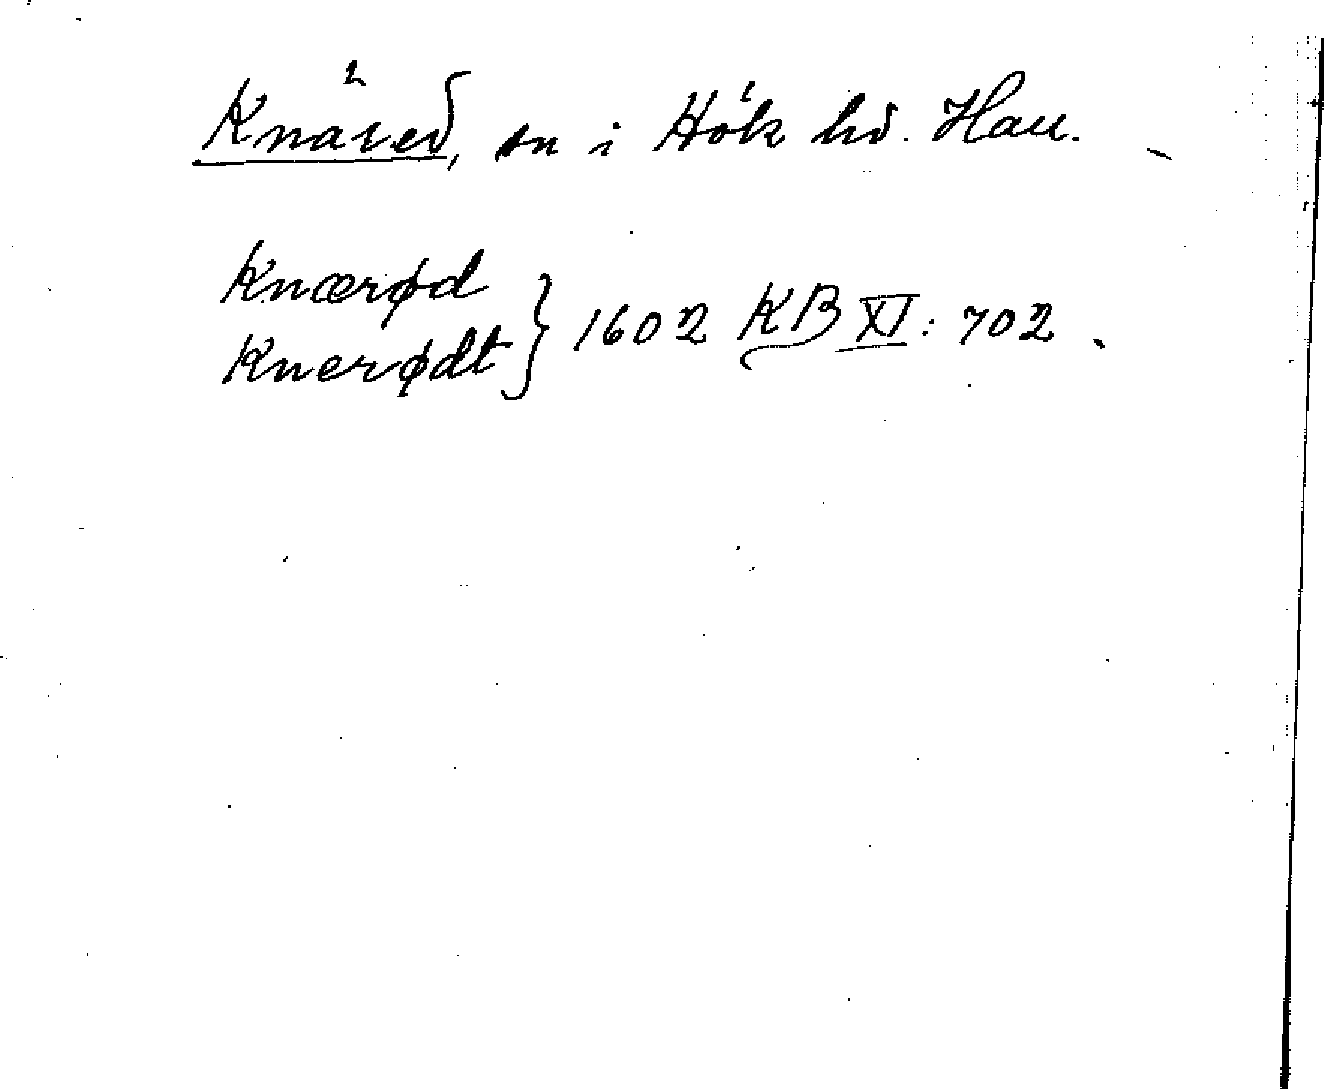 Knäred, sn i Hök hd. Hall.
Knærød
Knerødt } 1602 KB XI: 702.